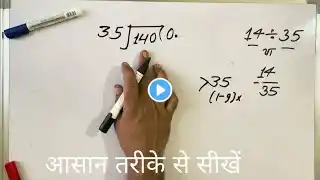 35)140(0.
14÷35
या
14/35
>35
(1-9)x
आसान तरीके से सीखें